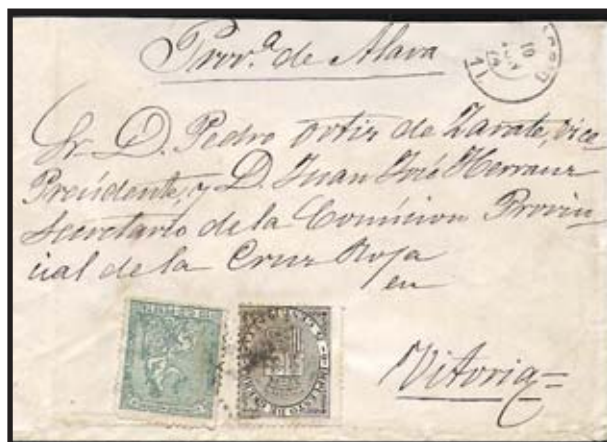 Prov.ª de Alava
Sr. D. Pedro Ortiz de Zarate, vice
Presidente, y D. Juan José Herranz
Secretario de la Comision Provin-
cial de la Cruz Roja
en
Vitoria=
10
IMPUESTO DE